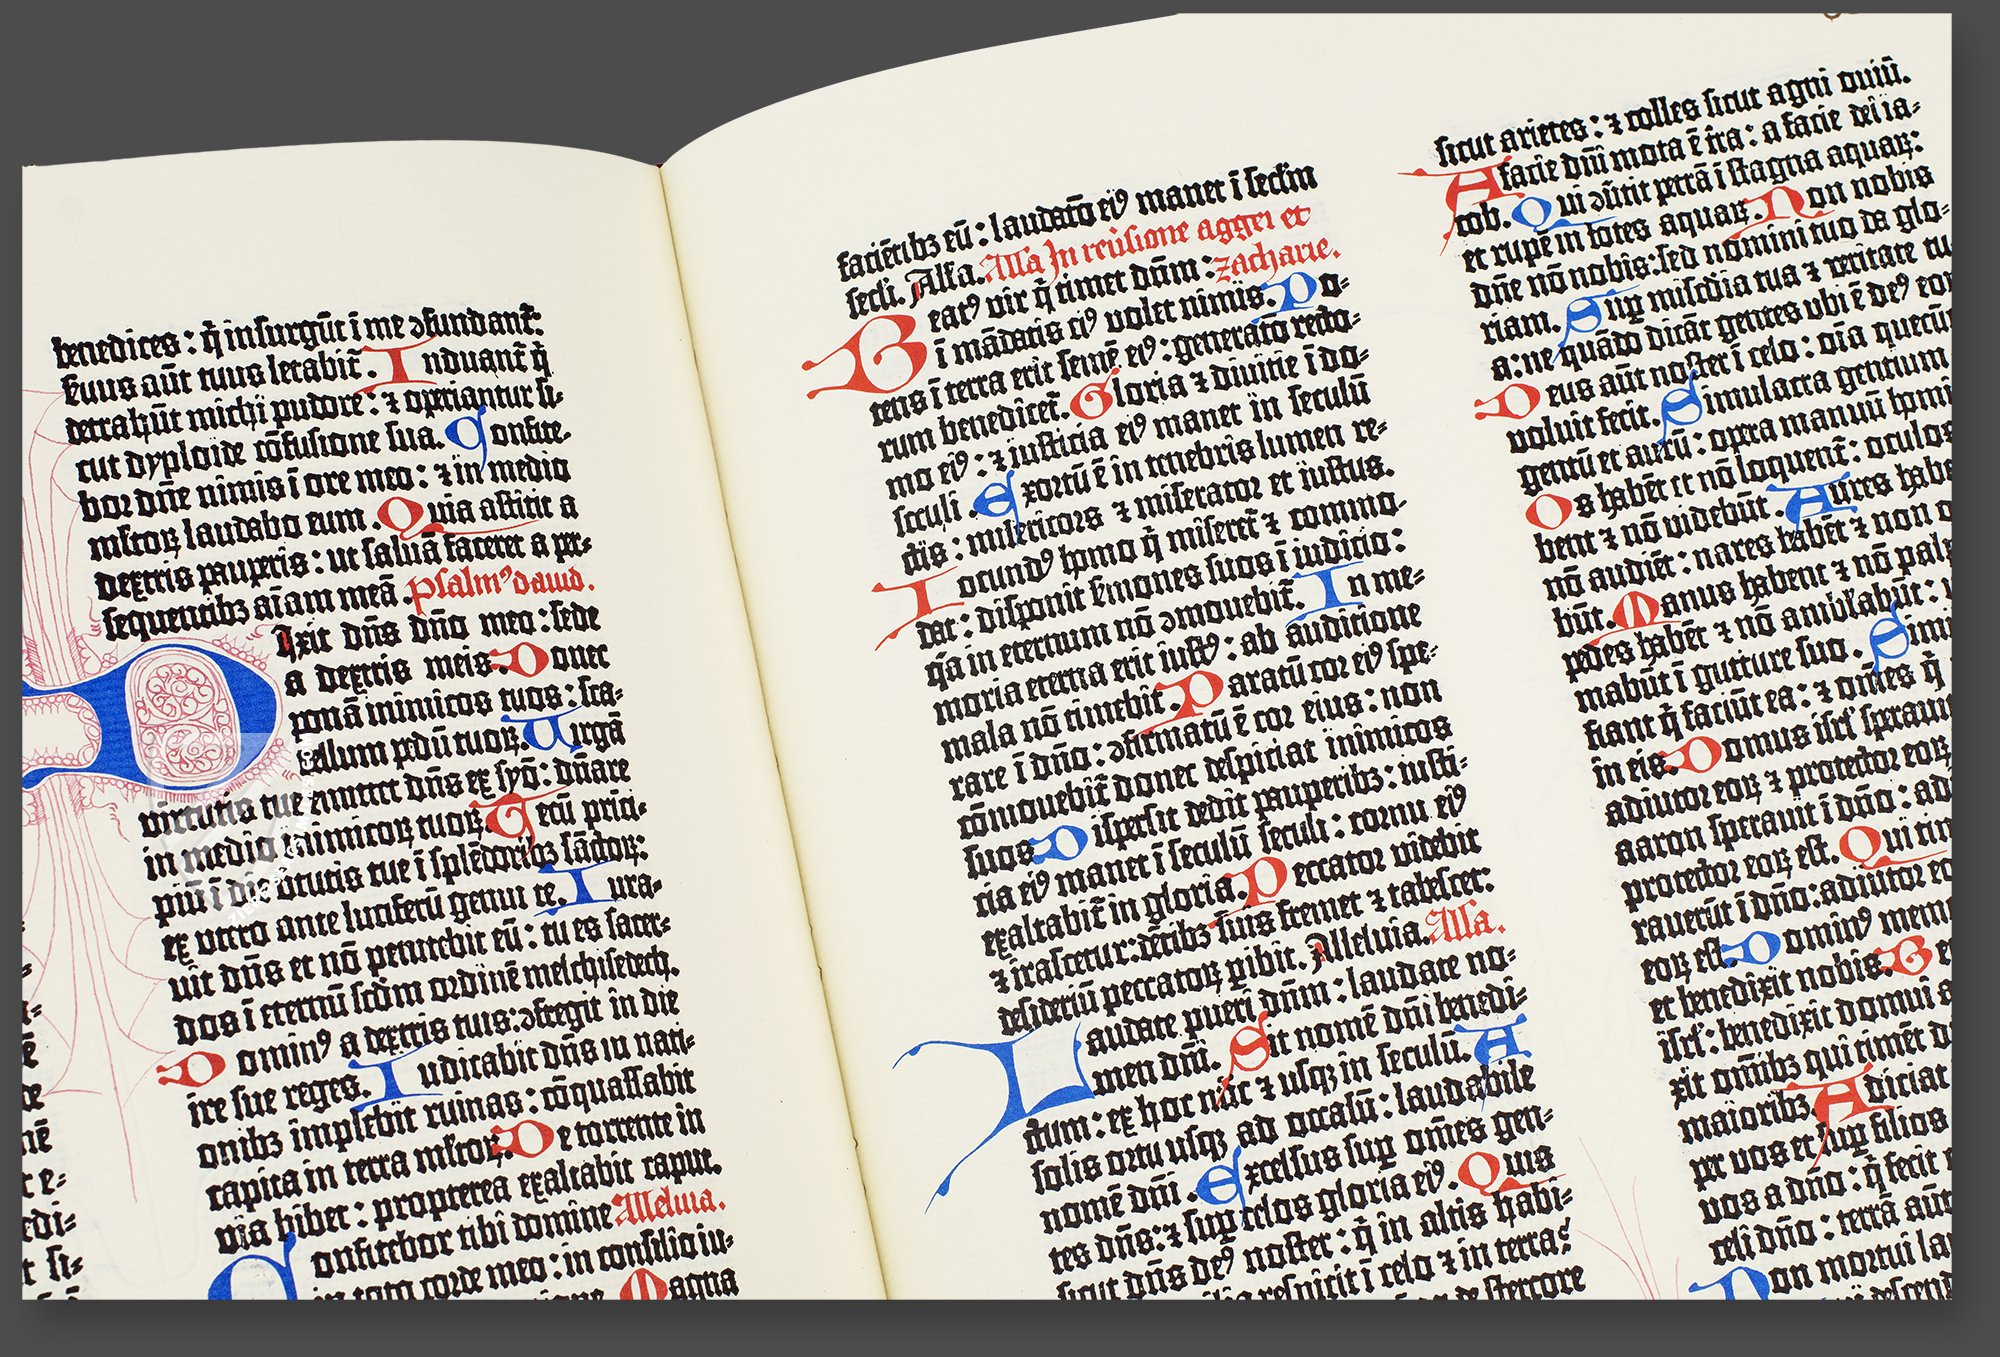 benedices : q̄ insurgūt ī me ɔfundant᷑.
seruus aūt tuus letabit᷑. Induant᷑ q̄
detrahūt michi pudore : ⁊ operiantur si-
cut dyploide cōfusione sua. Confite-
bor dn̄e nimis ī ore meo : ⁊ in medio
mltoꝝ laudabo eum. Quia astitit a
dextris pauperis : ut saluā faceret a per-
sequentibꝫ aīam meā. Psalmꝰ dauid.
Dixit dn̄s dn̄o meo : sede
a dextris meis. Donec
ponā inimicos tuos : sca-
bellum pedū tuoꝝ. Uirgā
virtutis tue emittet dn̄s ex syō : dn̄are
in medio inimicoꝝ tuoꝝ. Tecū princi-
piū ī die virtutis tue ī splēdoribꝫ sāctoꝝ:
ex utero ante luciferū genui te. Iura-
uit dn̄s et nō penitebit eū : tu es sacer-
dos ī eternū scd̄m ordinē melchisedech.
Dominꝰ a dextris tuis : ɔfregit in die
ire sue reges. Iudicabit dn̄s in nati-
onibꝫ implebit ruinas : cōquassabit
capita in terra mltoꝝ. De torrente in
via bibet : propterea exaltabit caput.
Confitebor tibi domine Alleluia.
in toto corde meo : in consilio iu-
Magna
facientibꝫ eū : laudatō eiꝰ manet ī seclm̄
secli. Alla. Alla In reūsione aggei et
Beatꝰ vir q̄ timet dn̄m : zacharie.
ī mādatis eiꝰ volet nimis. Po-
tens ī terra erit semē eiꝰ : generatō recto-
rum benedicet᷑. Gloria ⁊ diuitie ī do-
mo eiꝰ : ⁊ iusticia eiꝰ manet in seculū
seculi. Exortū ē in tenebris lumen re-
ctis : misericors ⁊ miserator et iustus.
Iocundꝰ homo q̄ miseret᷑ ⁊ commo-
dat : disponit sermones suos ī iudicio :
q̄a in eternum nō ɔmouebit᷑. In me-
moria eterna erit iustꝰ : ab auditione
mala nō timebit. Paratū cor eiꝰ spe-
rare ī dn̄o : ɔfirmatū ē cor eius : non
cōmouebit᷑ donec despiciat inimicos
suos. Dispersit dedit pauperibꝫ : iusti-
cia eiꝰ manet ī seculū seculi : cornu eiꝰ
exaltabit᷑ in gloria. Peccator videbit
⁊ irascetur : dētibꝫ suis fremet ⁊ tabescet :
desideriū peccatoꝝ peribit. Alleluia. Alla.
Laudate pueri dn̄m : laudate no-
men dn̄i. Sit nomē dn̄i benedi-
ctum : ex hoc nūc ⁊ usqꝫ in seculū. A
solis ortu usqꝫ ad occasū : laudabile
nomē dn̄i. Excelsus sup̄ om̄es gen-
tes dn̄s : ⁊ sup̄ celos gloria eiꝰ. Quis
sicut dn̄s deꝰ noster : q̄ in altis habi-
respicit ī celo ⁊ in terra :
de stercore
sicut arietes : ⁊ colles sicut agni ouiū.
A facie dn̄i mota ē t̄ra : a facie dei ia-
cob. Qui ɔuertit petrā ī stagna aquaꝝ :
et rupē in fōtes aquaꝝ. Non nobis
dn̄e nō nobis : sed nomini tuo da glo-
riam. Sup̄ misc̄dia tua ⁊ veritate tu-
a : ne quādo dicāt gentes ubi ē deꝰ eor
Deus aūt noster ī celo : oīa quecū
voluit fecit. Simulacra gentium
gentū et aurū : opera manuū homi
Os habēt et nō loquent᷑ : oculos
bent ⁊ nō videbūt. Aures habe
nō audiēt : nares habēt ⁊ non o
būt. Manus habent ⁊ nō palp
pedes habēt ⁊ nō ambulabūt :
mabūt ī gutture suo. Simi
fiant q̄ faciūt ea : ⁊ om̄es q̄
in eis. Domus isrl̄ sperauit
adiutor eoꝝ ⁊ protector eoꝝ
aaron sperauit ī dn̄o : ad
protector eoꝝ est. Qui tim
rauerūt ī dn̄o : adiutor eo
eoꝝ est. Dominꝰ mem
et benedixit nobis. Be
isrl̄ : benedixit domui a
xit om̄ibꝫ qui timēt d
maioribꝫ. Adiciat
per vos et sup̄ filios
vos a dn̄o : q̄ fecit
celi dn̄o : terrā aūt
Non mortui la
descend